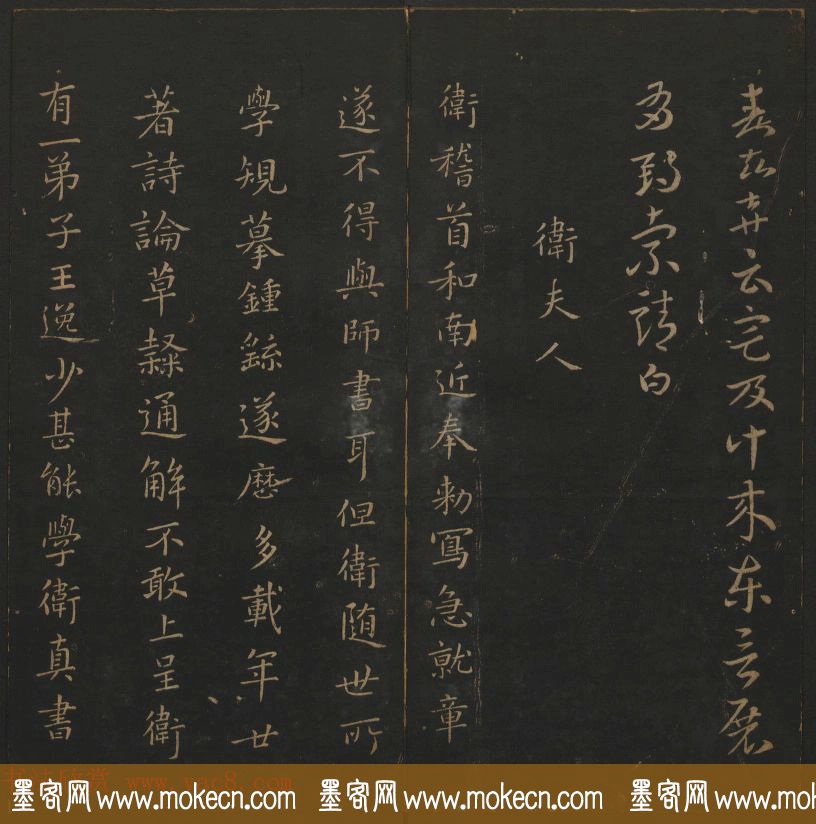 云宅及
索靖白
衛夫人
衛稽首和南近奉勅寫急就章
遂不得與師書耳但衛随世所
學規摹鍾繇遂歷多載年廿
著詩論草隸通解不敢上呈衛
有一弟子王逸少甚能學衛真書
书法欣赏 www.yac8.com
墨客网 www.mokecn.com 墨客网 www.mokecn.com 墨客网 www.mokecn.com